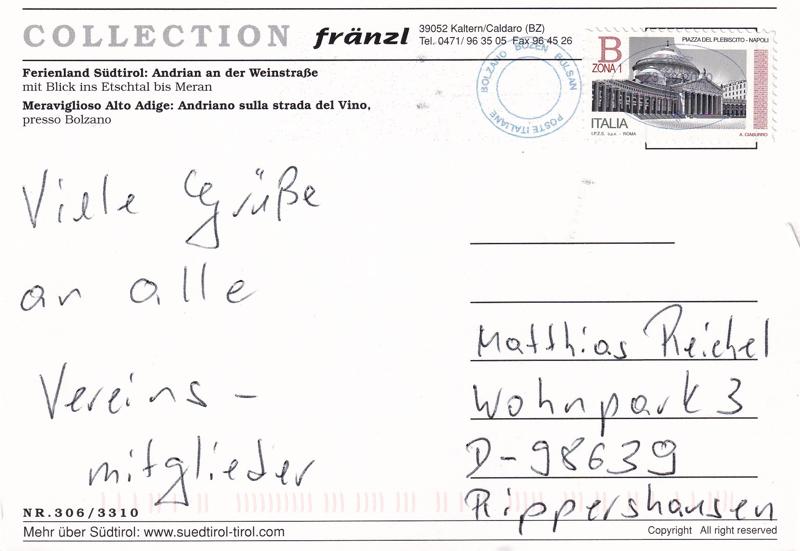 COLLECTION fränzl 39052 Kaltern/Caldaro (BZ)
Tel. 0471/ 96 35 05 Fax 96 45 26
Ferienland Südtirol: Andrian an der Weinstraße
mit Blick ins Etschtal bis Meran
Meraviglioso Alto Adige: Andriano sulla strada del Vino,
presso Bolzano
BOLZANO BOZEN BULSAN
POSTE ITALIANE
PIAZZA DEL PLEBISCITO - NAPOLI
B
ZONA 1
ITALIA
I.P.Z.S. S.p.A. - ROMA
A. CIABURRO
Viele Grüße
an alle
Vereins -
mitglieder
Matthias Reichel
Wohnpark 3
D-98639
Rippershausen
NR.306/3310
Mehr über Südtirol: www.suedtirol-tirol.com
Copyright All right reserved